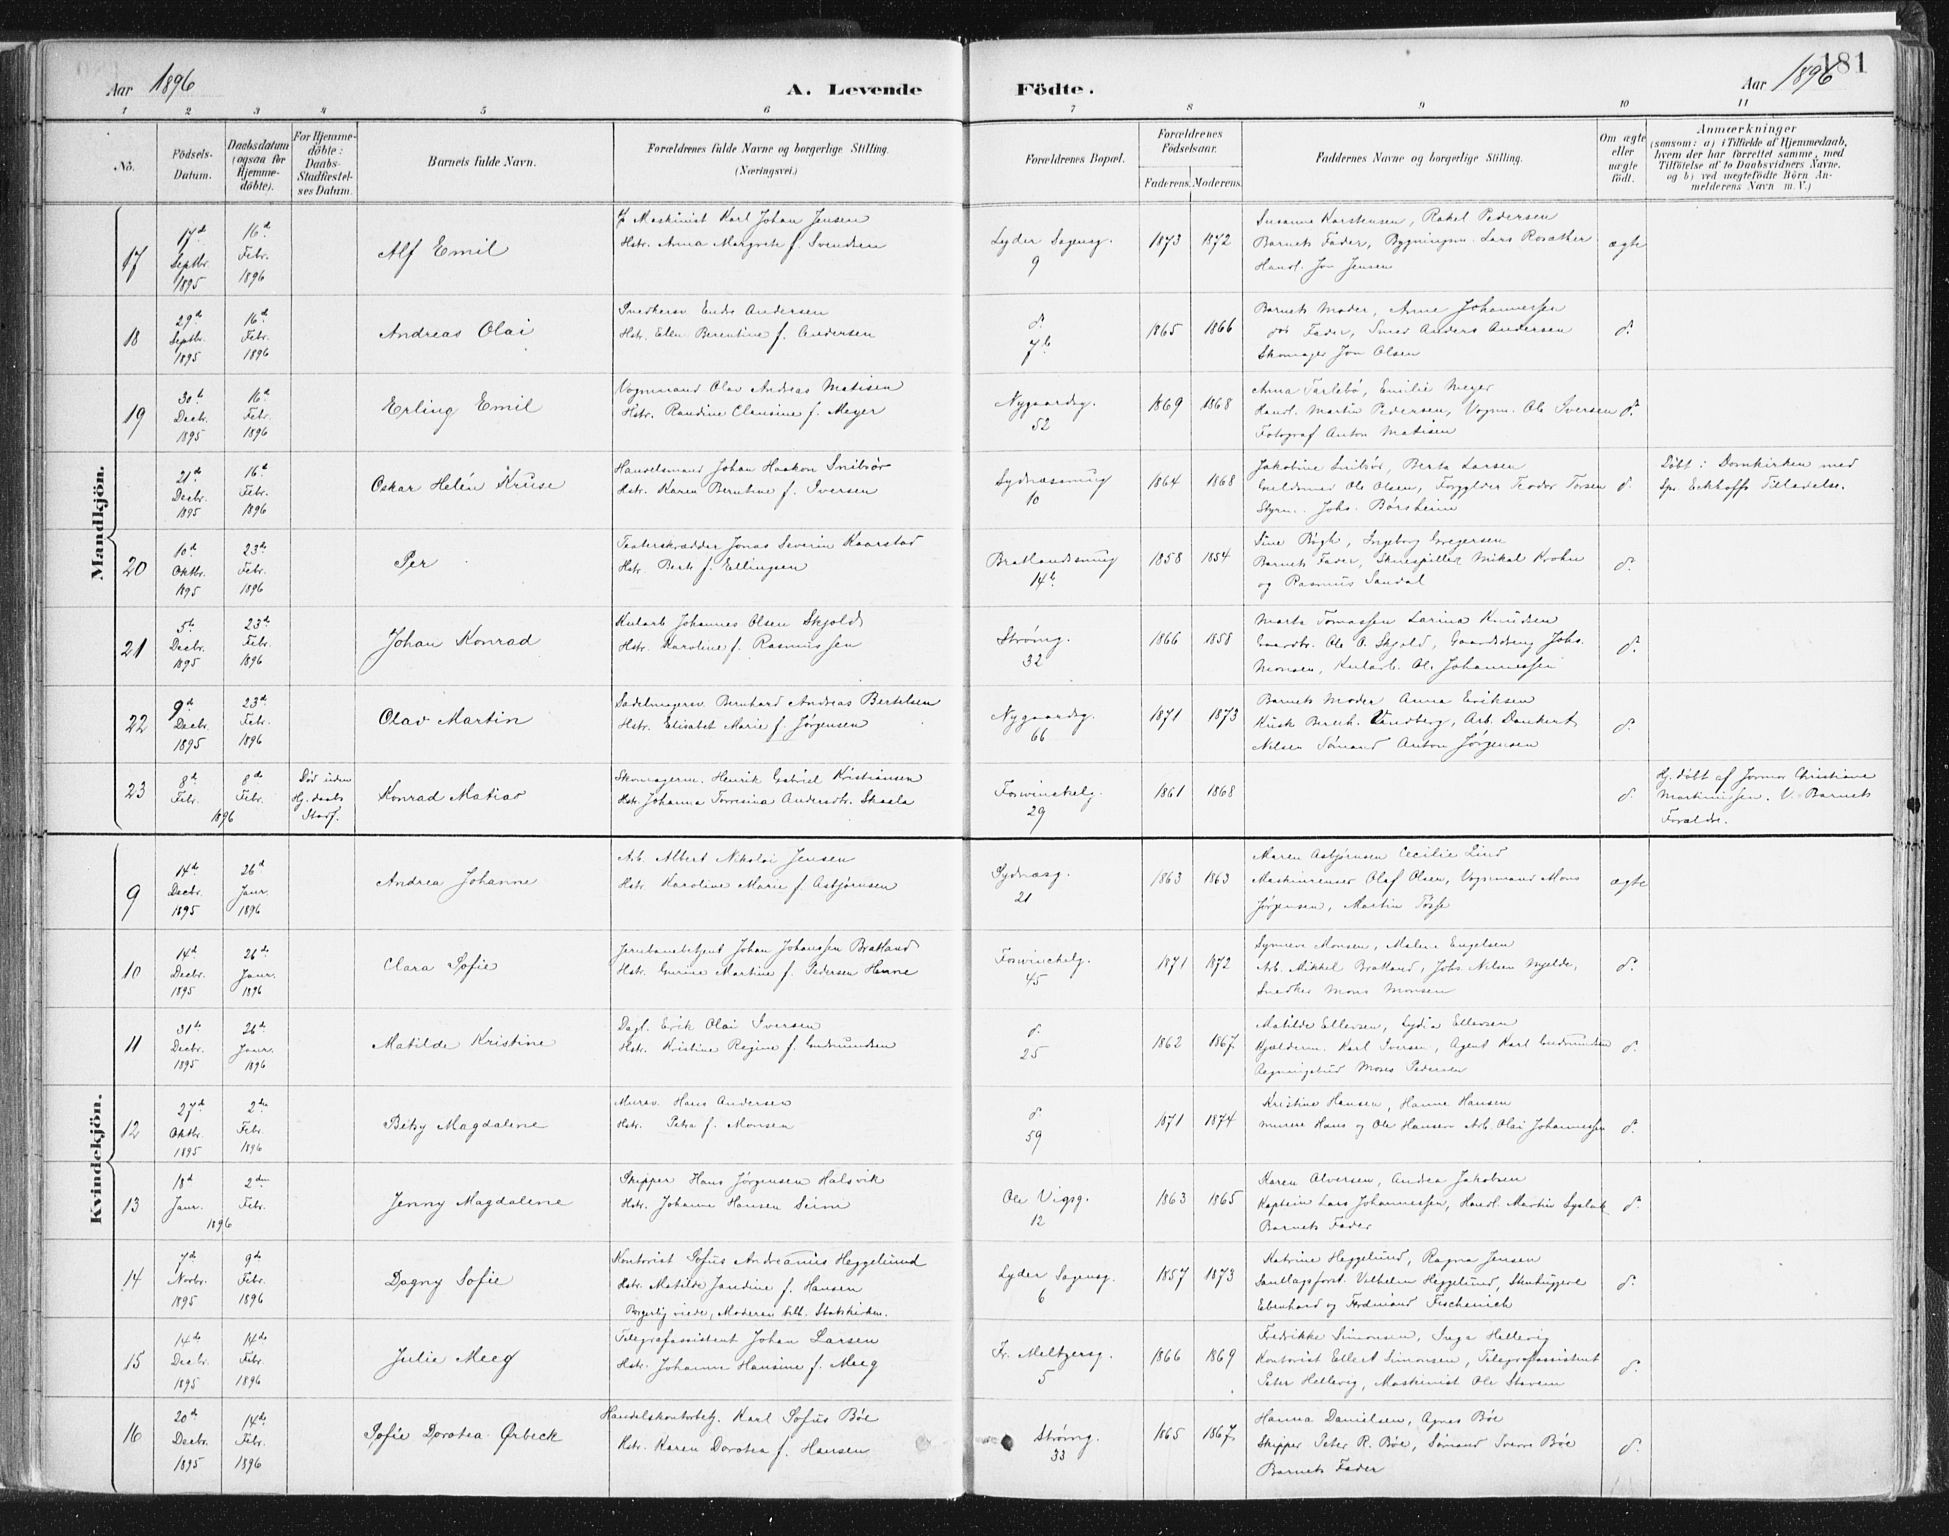 181
Aar 1896
A. Levende Födte.
Aar 1896
1 2 3 4 5 6 7 8 9 10 11
No.
Födsels-
Datum.
Daabsdatum
(ogsaa for
Hjemme-
döbte).
For Hjemme-
döbte:
Daabs-
Stadfæstel-
ses Datum.
Barnets fulde Navn.
Forældrenes fulde Navne og borgerlige Stilling.
(Næringsvei.)
Forældrenes Bopæl.
Forældrenes
Födselsaar.
Faderens. Moderens.
Faddernes Navne og borgerlige Stilling.
Om ægte
eller
uægte
födt.
Anmærkninger
(saasom: a) i Tilfælde af Hjemmedaab,
hvem der har forrettet samme, med
Tilföielse af to Daabsvidners Navne,
og b) ved uægtefödte Börn An-
melderens Navn m. V.)
Mandkjön.
17
17d Septbr. 1895
16d Febr. 1896
Alf Emil
Maskinist Karl Johan Jensen
Hstr. Anna Margrete f. Svendsen
Lyder Sagensg.
9
1873 1872
Susanne Karstensen, Rakel Pedersen
Barnets Fader, Bygningsm. Lars Rosæther
Handl. Jon Jensen
ægte
18
29d Septbr. 1895
16d Febr. 1896
Andreas Olai
Snedkersv. Endre Andersen
Hstr. Elen Berentine f. Andersen
do.
7b
1865 1866
Barnets Moder, Anne Johannessen
Fader, Smed Anders Andersen
Skomager Jon Olsen
do.
19
30te Decbr. 1895
16d Febr. 1896
Erling Emil
Vognmand Olav Andreas Matisen
Hstr. Randine Clausine f. Meyer
Nygaardsg.
52
1869 1868
Anna Tarlebø, Emilie Meyer
Handl. Martin Pedersen, Vogm. Ole Iversen
Fotograf Anton Matisen
do.
21de Decbr. 1895
16d Febr. 1896
Oskar Helén Kruse
Handelsmand Johan Haakon Snilsør
Hstr. Karen Berntine f. Iversen
Sydnæssmug
10
1864 1868
Jakobine Snilsør, Berta Larsen
Guldsmed Ole Olsen, Forgylder Teodor Torsen
Styrm. Johs. Børsheim
do.
Døbt i Domkirken med
Spr. Eckhoffs Tilladelse.
20
10d Oktbr. 1895
23de Febr. 1896
Per
Teaterskrædder Jonas Severin Kaarstad
Hstr. Berte f. Ellingsen
Bratlandssmug
14b
1858 1854
Sine Bøgh, Ingeborg Gregersen
Barnets Fader, Skuespiller Mikal Krohn
og Rasmus Sandal
do.
21
5te Decbr. 1895
23de Febr. 1896
Johan Konrad
Kularb. Johannes Olsen Skjold
Hstr. Karoline f. Rasmussen
Strømg.
32
1866 1858
Marta Tomassen Larina Knudsen
Gaardbr. Ole O. Skjold, Gaardsdreng Johs.
Monsen, Kularb. Ol. Johannessen
do.
22
9d Decbr. 1895
23de Febr. 1896
Olav Martin
Sadelmagersv. Bernhard Andreas Bertelsen
Hstr. Elisabet Marie f. Jørgensen
Nygaardsg.
66
1871 1873
Barnets Moder Anna Eriksen
Kusk Bernh. Lindberg, Arb. Dankert
Nilsen Sømand Anton Jørgensen
do.
23
8de Febr.
8de Febr.
1896
Død uden
Hj. daabs
Stadf.
Konrad Matias
Skomagerm. Henrik Gabriel Kristiansen
Hstr. Johanna Torresina Andersdtr. Skaala
Fosvinckelg.
29
1861 1868
do.
Hj. døbt af Jormor Christiane
Martinussen. V. Barnets
Forældre.
Kvindekjön.
9
14de Decbr. 1895
26d Janr. 1896
Andrea Johanne
Arb. Albert Nikolai Jensen
Hstr. Karoline Marie f. Asbjørnsen
Sydnæsg.
21
1863 1863
Maren Asbjørnsen Cecilie Lind
Maskinrenser Olaf Olsen, Vognmand Mons
Jørgensen, Martin Tøsse
ægte
10
14d Decbr. 1895
26de Janr. 1896
Clara Sofie
Jernbanebetjent Johan Johanssen Bratland
Hstr. Gurine Martine f. Pedersen Hanne
Foswinckelg.
45
1871 1872
Synneve Monsen, Malene Engelsen
Arb. Mikkel Bratland, Johs Nilsen Mjelde,
Snedker Mons Monsen
do.
11
31te Decbr. 1895
26de Janr. 1896
Matilde Kristine
Dagl. Erik Olai Iversen
Hstr. Kristine Regine f. Gudmundsen
do.
25
1862 1867
Matilde Ellersen, Lydia Ellersen
Kjælderm. Karl Iversen, Agent Karl Gudmundsen
Regningsbud Moses Pedersen
do.
12
27d Oktbr. 1895
2den Febr. 1896
Betsy Magdalene
Mursv. Hans Andersen
Hstr. Petra f. Monsen
do.
59
1871 1874
Kristine Hansen, Hanne Hansen
Murere Hans og Ole Hansen Arb. Olai Johannessen
do.
13
18d Janr.
2den Febr.
1896
Jenny Magdalene
Skipper Hans Jørgensen Halsvik
Hstr. Johanne Hansen Seim
Ole Vigsg.
12
1863 1865
Karen Alversen, Andrea Jakobsen
Kaptein Lars Johannessen, Handl. Martin Syslak
Barnets Fader
do.
14
7de Novbr. 1895
9de Febr. 1896
Dagny Sofie
Kontorist Sofus Andreanus Heggelund
Hstr. Matilde Jandine f. Hansen
Borgerlig viede, Moderen tilh. Statskirken.
Lyder Sagensg.
6
1857 1873
Katrine Heggelund, Ragna Jensen
Vilhelm Heggelund, Stenhuggere
Ebenhard og Ferdinand Fischenich
do.
15
14de Decbr. 1895
14de Febr. 1896
Julie Meeg
Telegrafassistent Johan Larsen
Hstr. Johanne Hansine f. Meeg
Fr. Meltzersg.
5
1866 1869
Fredrikke Simonsen, Inga Hellevig
Kontorist Ellert Simonsen, Telegrafassistent
Peter Hellevig, Maskinist Ole Stavem
do.
16
20d Decbr. 1895
14de Febr. 1896
Sofie Dorotea Ørbeck
Handelskontorbetj. Karl Sofus Bøe
Hstr. Karen Dorotea f. Hansen
Strømg.
33
1865 1867
Hanna Danielsen, Agnes Bøe
Skipper Peter R. Bøe, Sømand Sverre Bøe
Barnets Fader
do.